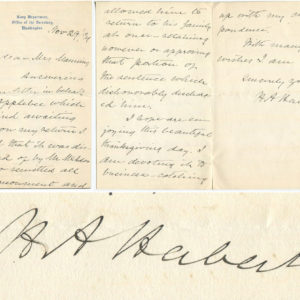 Navy Department,
Office of the Secretary,
Washington.
Nov 29, 94
dear Mrs.
Answering
letter in behalf
Applebee which
and awaiting
on my return I
that he was
of by Mr.
remitted all
and
allowed him to
return to his family
at once
however or approving
that portion of
the sentence which
dishonorably discharged
him.
I hope are en-
joying this beautiful
thanksgiving day. I
am devoting it to
business - catching
up with my
pondence.
With many
wishes I am
Sincerely yo
H A Her
H A Herbert